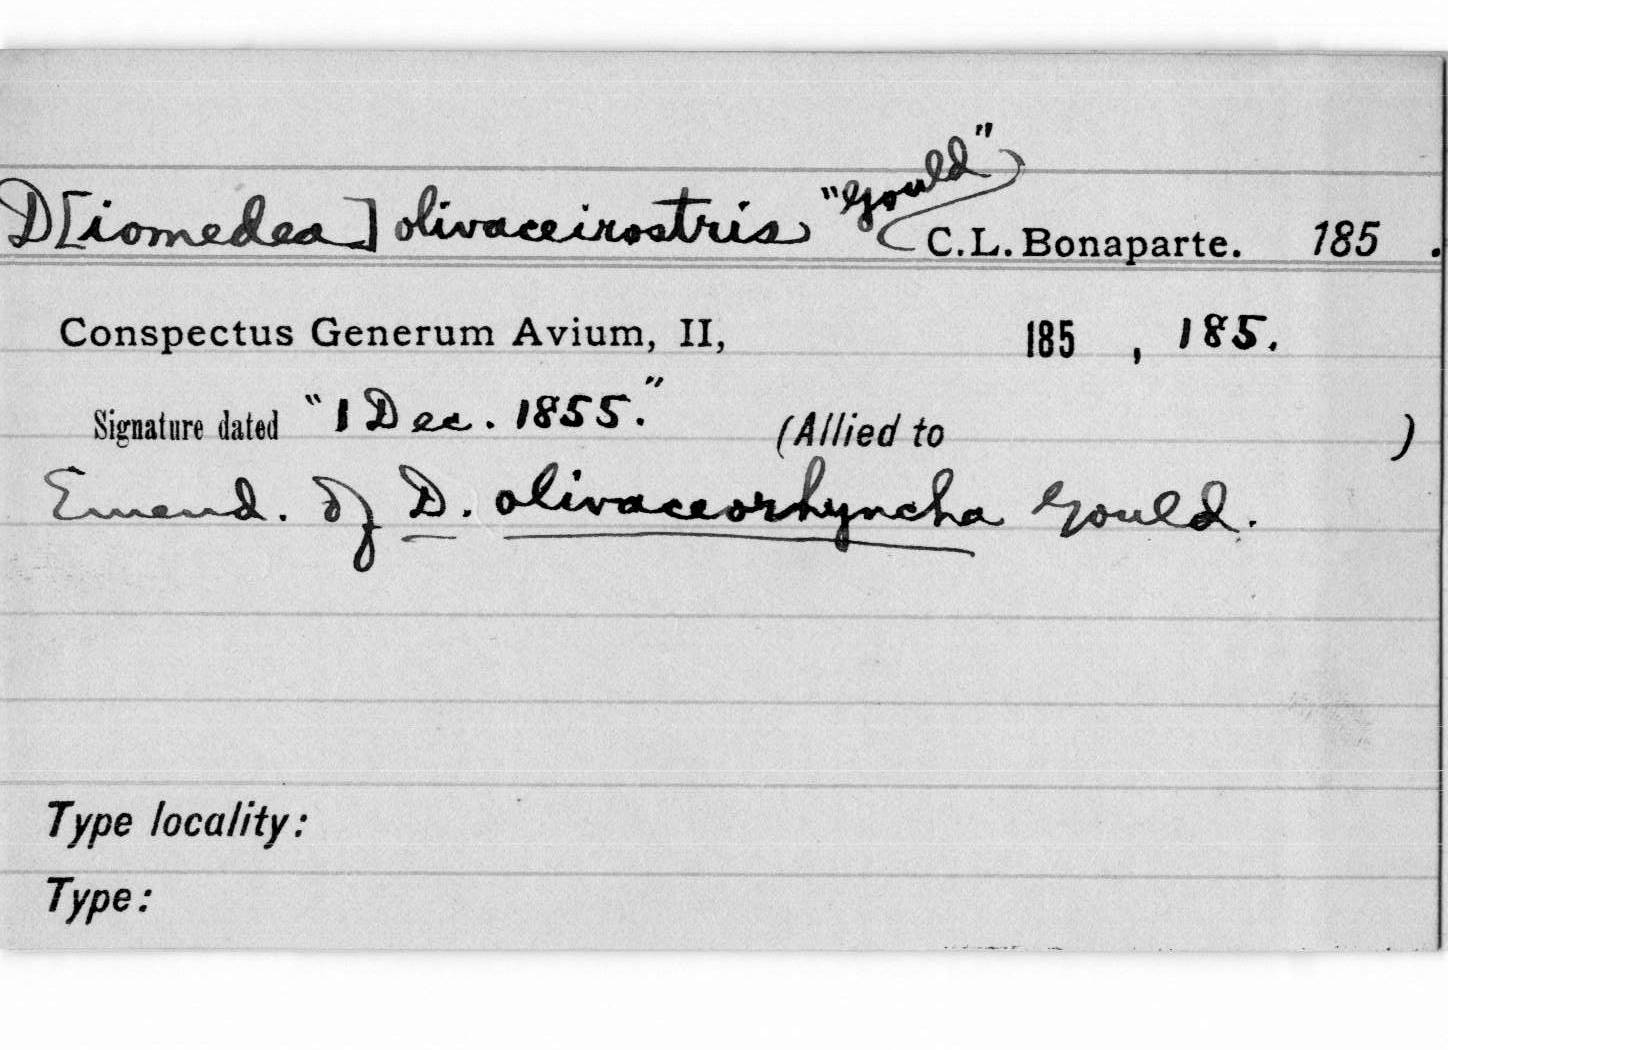 D[iomedea] olivaceirostris "Gould" C.L. Bonaparte. 185 .
Conspectus Generum Avium, II, 185 , 185.
Signature dated "1 Dec. 1855." (Allied to )
Emend. of D. olivaceorhyncha Gould.
Type locality:
Type: